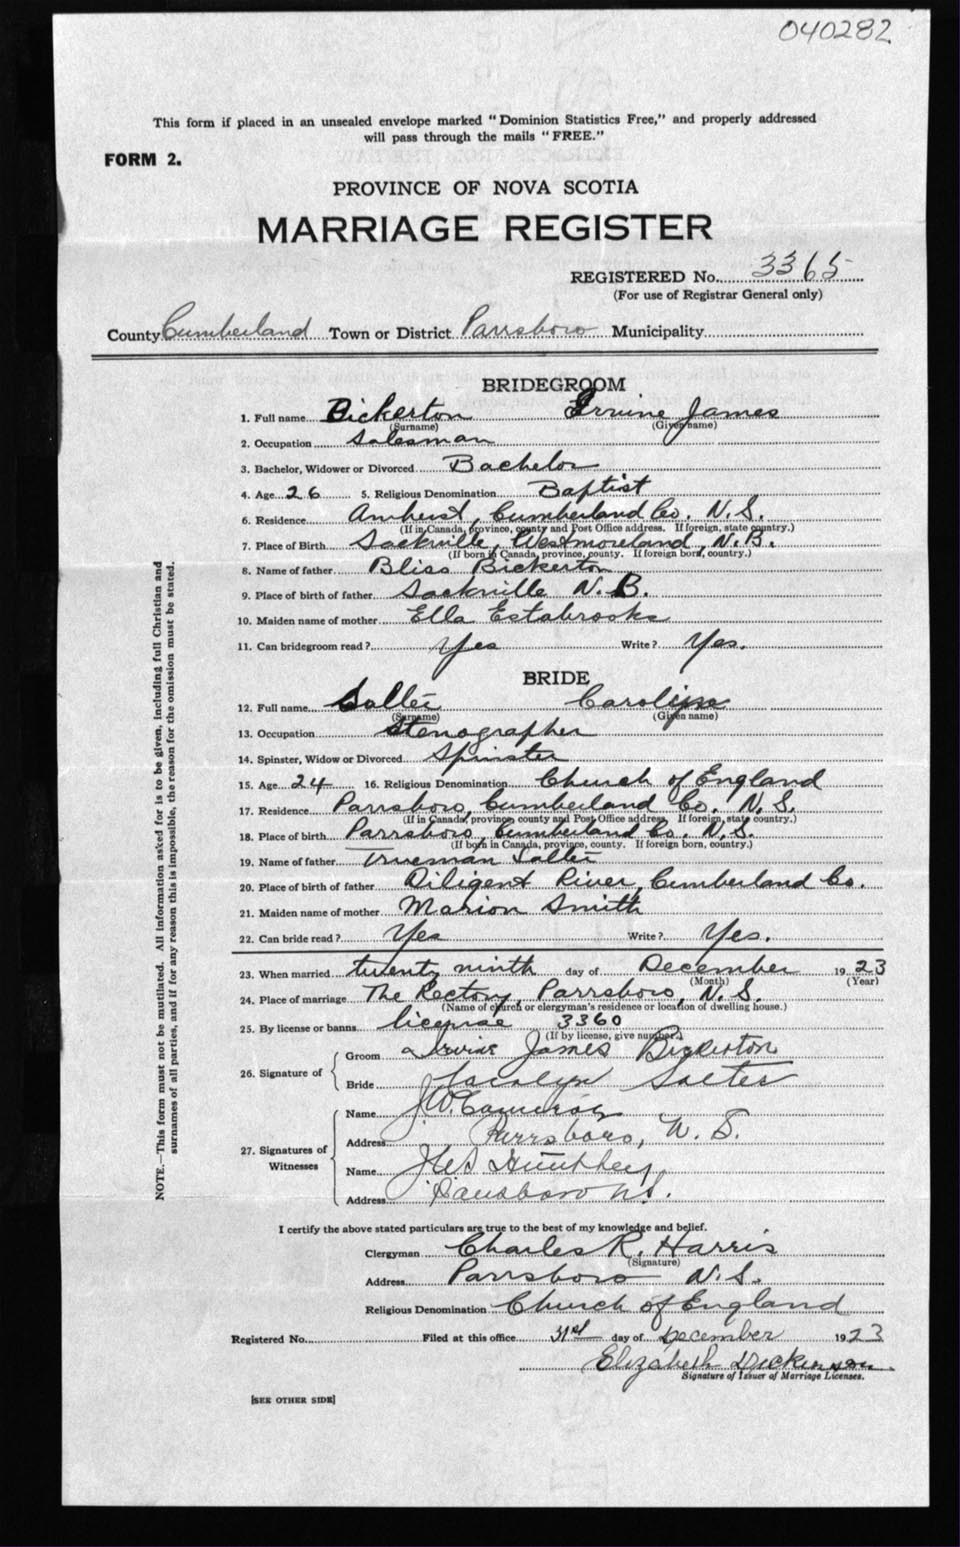 040282
This form if placed in an unsealed envelope marked "Dominion Statistics Free," and properly addressed
will pass through the mails "FREE."
FORM 2.
PROVINCE OF NOVA SCOTIA
MARRIAGE REGISTER
REGISTERED No. 3365
(For use of Registrar General only)
County Cumberland Town or District Parrsboro Municipality
BRIDEGROOM
1. Full name Bickerton Irvine James
(Surname) (Given name)
2. Occupation Salesman
3. Bachelor, Widower or Divorced Bachelor
4. Age 26 5. Religious Denomination Baptist
6. Residence Amherst, Cumberland Co. N.S.
(If in Canada, province, county and Post Office address. If foreign, state country.)
7. Place of Birth Sackville, Westmoreland, N.B.
(If born in Canada, province, county. If foreign born, country.)
8. Name of father Bliss Bickerton
9. Place of birth of father Sackville N.B.
10. Maiden name of mother Ella Estabrooks
11. Can bridegroom read? Yes Write? Yes.
BRIDE
12. Full name Salter
(Surname) (Given name)
13. Occupation Stenographer
14. Spinster, Widow or Divorced Spinster
15. Age 24 16. Religious Denomination Church of England
17. Residence Parrsboro, Cumberland Co. N.S.
(If in Canada, province county and Post Office address. If foreign, state country.)
18. Place of birth Parrsboro, Cumberland Co. N.S.
(If born in Canada, province, county. If foreign born, country.)
19. Name of father Trueman Salter
20. Place of birth of father Diligent River, Cumberland Co.
21. Maiden name of mother Marion Smith
22. Can bride read? Yes Write? Yes.
23. When married twenty ninth day of December 1923
(Month) (Year)
24. Place of marriage The Rectory, Parrsboro, N.S.
(Name of church or clergyman's residence or location of dwelling house.)
25. By license or banns license 3360
(If by license, give number.)
26. Signature of
Groom Irvine James Bickerton
Bride Salter
27. Signatures of Witnesses
Name J.W. Cameron
Address Parrsboro, N.S.
Name Humphrey
Address Parrsboro N.S.
I certify the above stated particulars are true to the best of my knowledge and belief.
Clergyman Charles R. Harris
(Signature)
Address Parrsboro N.S.
Religious Denomination Church of England
Registered No. Filed at this office 31st day of December 1923
Elizabeth Dickinson
Signature of Issuer of Marriage Licenses.
[SEE OTHER SIDE]
NOTE.—This form must not be mutilated. All information asked for is to be given, including full Christian and
surnames of all parties, and if for any reason this is impossible, the reason for the omission must be stated.